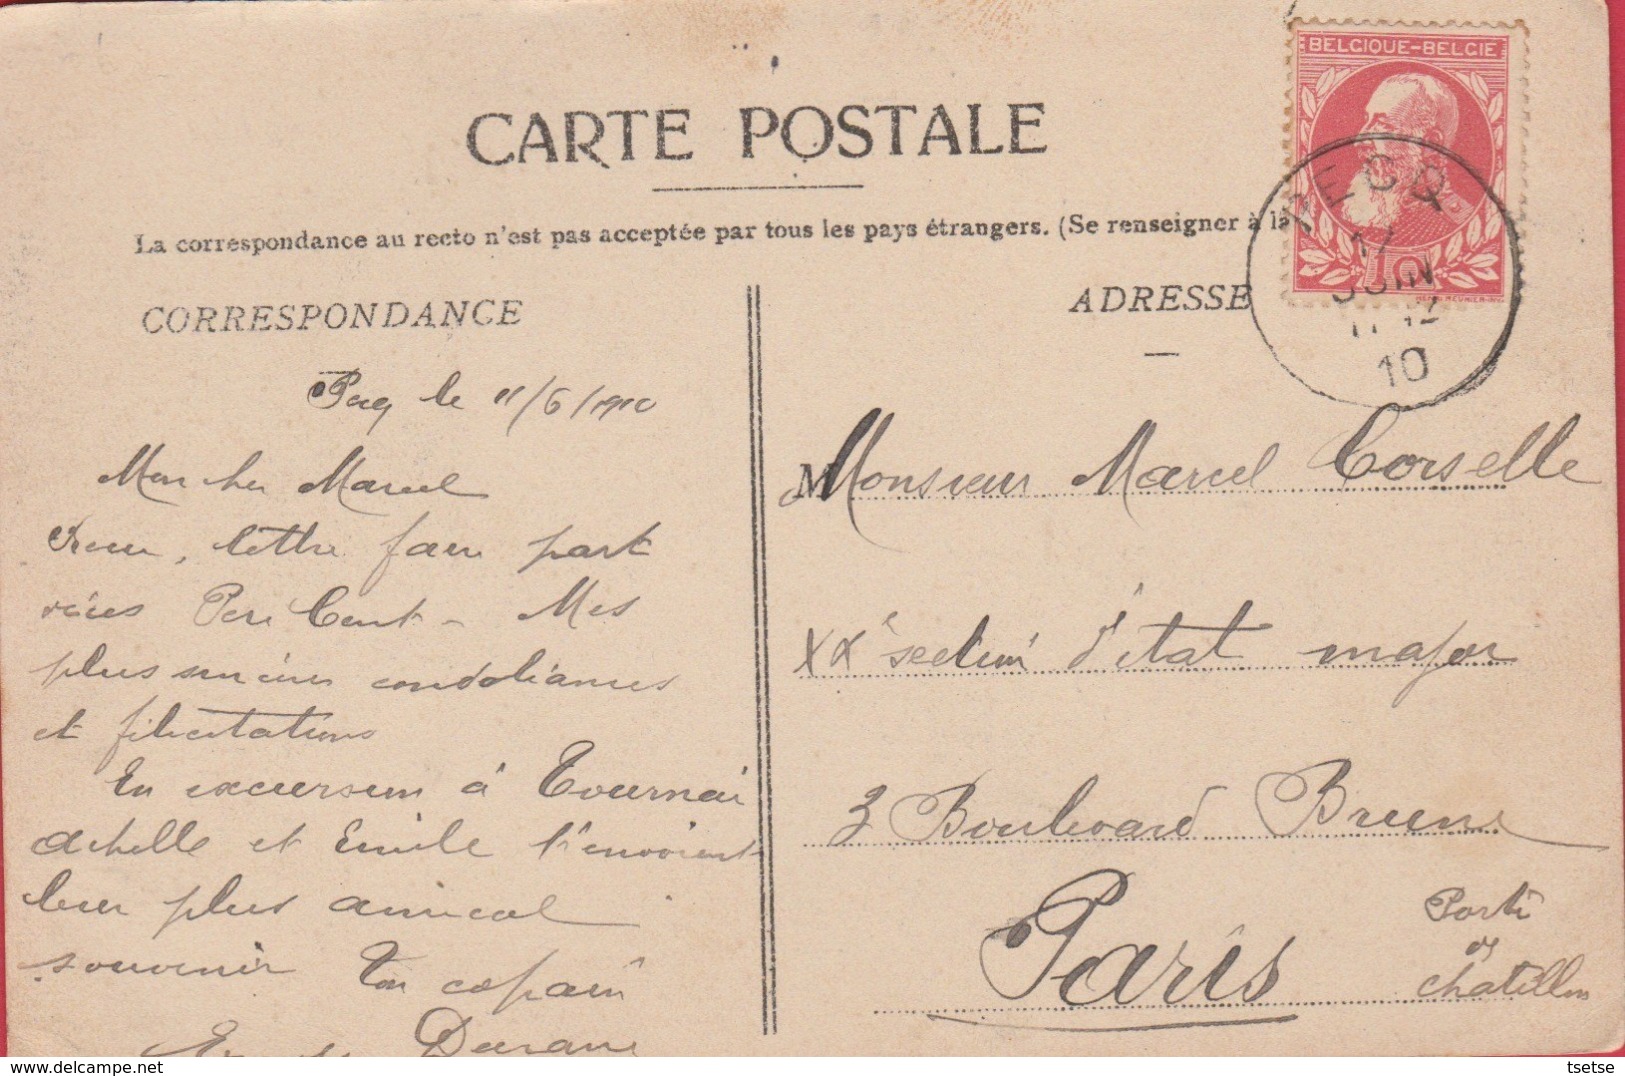 BELGIQUE-BELGIE
10
PECQ
JUIN
10
CARTE POSTALE
La correspondance au recto n'est pas acceptée par tous les pays étrangers. (Se renseigner à la
CORRESPONDANCE
ADRESSE
Pecq le 11/6/1910
Mon cher Marcel
Reçu, lettre faire part
Mes
plus sincères condoléances
et félicitations
En excursion à Tournai
Achille et Emile t'envoient
leur plus amical
souvenir Ton copain
Monsieur Marcel Corselle
XXe section d'état major
3 Boulevard Brune
Paris
Porte
de
Chatillon
delcampe.net
tsetse